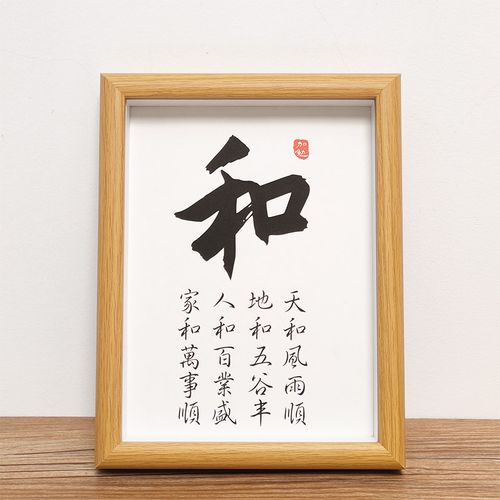 和
天和風雨順
地和五谷丰
人和百業盛
家和萬事順